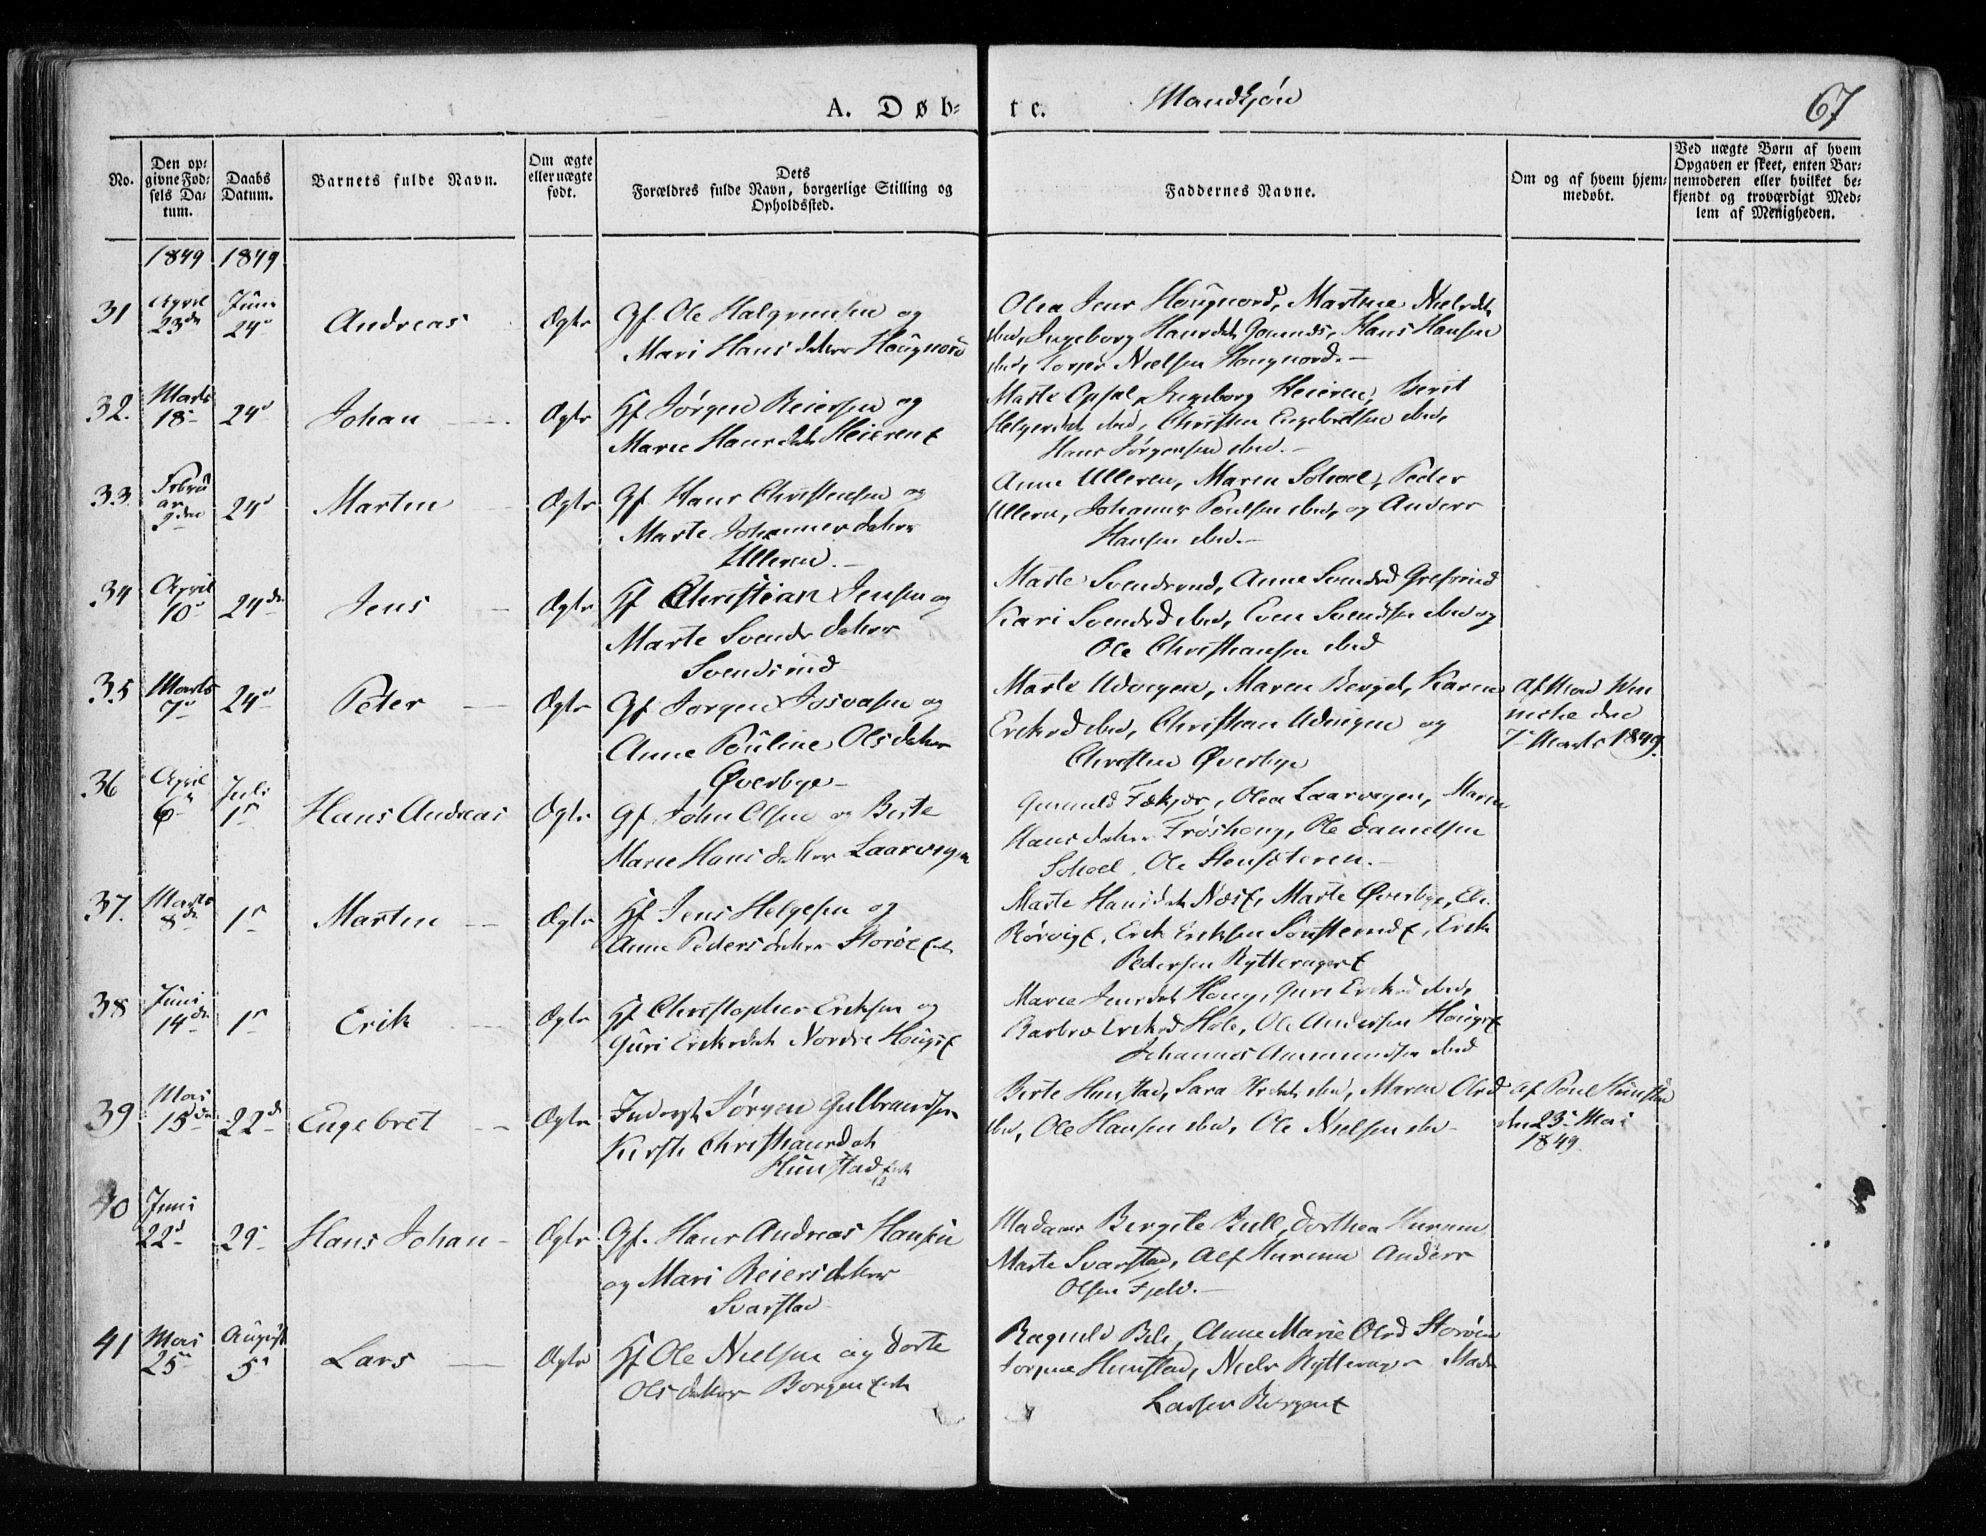 A. Døb- te. Mandkjøn 67
No.
Den op-
givne Fød-
sels Da-
tum.
Daabs
Datum.
Barnets fulde Navn.
Om ægte
eller uægte
født.
Dets
Forældres fulde Navn, borgerlige Stilling og
Opholdssted.
Faddernes Navne.
Om og af hvem hjem-
medøbt.
Ved uægte Børn af hvem
Opgaven er skeet, enten Bar-
nemoderen eller hvilket be-
kjendt og troværdigt Med-
lem af Menigheden.
1849 1849
31 April 23de Juni 24d Andreas Ægte
Gf. Ole Halgrimsen og
Mari Hansdatter Hougnord
Olea Hougnord, Martine
Ingeborg Hansdt, Hans Hansen
Nielsen Hougnord.-
32. Marts 18- 24d Johan Ægte
Hf Jørgen Reiersen og
Marie Hansdt Heieren
Marte Opsal, Ingeborg Heieren, Berit
Christen Engebretsen ibid,
Hans Jørgensen ibid.-
33. Februar 9den 24d Martin Ægte
Gf. Hans Christensen og
Marte Johannesdatter
Ulleren.-
Anne Ulleren, Maren Sohoel, Peder
Ulleren, Johannes Poulsen ibid, og Anders
Hansen ibid.-
34 April 10- 24de Jens Ægte
Hf Christian Jensen og
Marte Svendsdatter
Svendsrud
Marte Svendsrud, Anne Svendsd Grefsrud
Kari Svendsd ibid, Even Svendsen ibid og
Ole Christiansen ibid
35 Marts 7d 24d Peter Ægte
Gf. Jørgen Josvasen og
Anne Pouline Olsdatter
Øverbye-
Marte Udvigen, Maren Berget, Karen
Ericksd ibid, Christian Udvigen og
Christen Øverbye
Af Mad
den
7de Marts 1849.
36 April 6d Juli 1st Hans Andreas Ægte
Gf. John Olsen og Berte
Marie Hansdatter Laarvigen
Gunnild Olea Laarvigen, Maren
Hansdatter Frøshoug, Ole Danielsen
Sohoel, Ole Stensæteren.-
37. Marts 8de 1st Martin Ægte
Hf. Jens Helgesen og
Anne Pedersdatter Storøe
Marte Hansdt Næs, Marte Øverbye,
Rørvig, Erik Eriksen Sønsterud, Erik
Pedersen Rytterager
38 Juni 14de 1st Erik Ægte
Hf Christopher Eriksen og
Guri Ericksdat Nordre Houg
Maren Jensdat Houg, Guri Ericksd ibid,
Barbro Ericksd Hole, Ole Andersen Houg
Johannes Ammundsen ibid
39 Mai 15de 22d Engebret Ægte
Inderst Jørgen Gulbrandsen
Kirsti Christiansdat
Hunstad
Berte Hunstad, Sara ibid, Maren Olsd
ibid, Ole Hansen ibid, Ole Nielsen ibid
Af Poul Hunstad
den 23de Mai
1849.
40 Juni 22d 29- Hans Johan Ægte
Gf. Hans Andreas Hansen
og Mari Reiersdatter
Svarstad
Madame Birgite Bull, Dorthea Hurum
Marte Svarstad, Alf Hurum Anders
Olsen Fjeld.-
41 Mai 25de August 5d Lars Ægte
Hf Ole Nielsen og Dorte
Olsdatter Borgen
Ragnild Anne Marie Olsd Storøen
Jørgine Hunstad, Niels Rytterager
Larsen Borgen